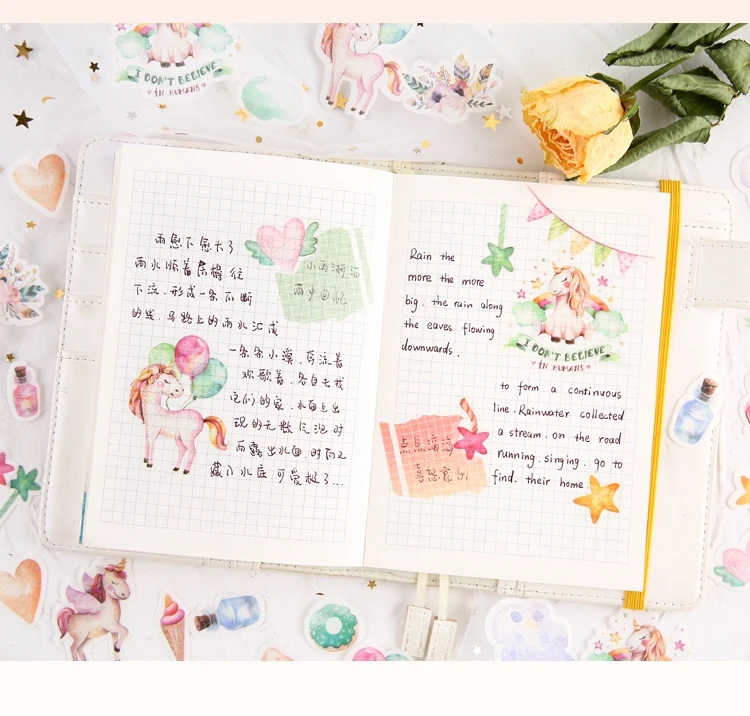 I DON'T BELIEVE
IN HUMANS
雨愈下愈大了
雨水顺着房檐往
下流.形成一条不断
的线.马路上的雨水汇成
一条条小溪.奔流着
欢歌着.各自去找
它们的家.水面上出
现的无数气泡时
而露出水面.时而又
藏入水底.可爱极了...
小雨淅沥
雨中回忆
I DON'T BELIEVE
IN HUMANS
Rain the
more the more
big. the rain along
the eaves flowing
downwards.
to form a continuous
line. Rainwater collected
a stream. on the road
running. singing. go to
find. their home.
点点滴滴
喜怒哀乐